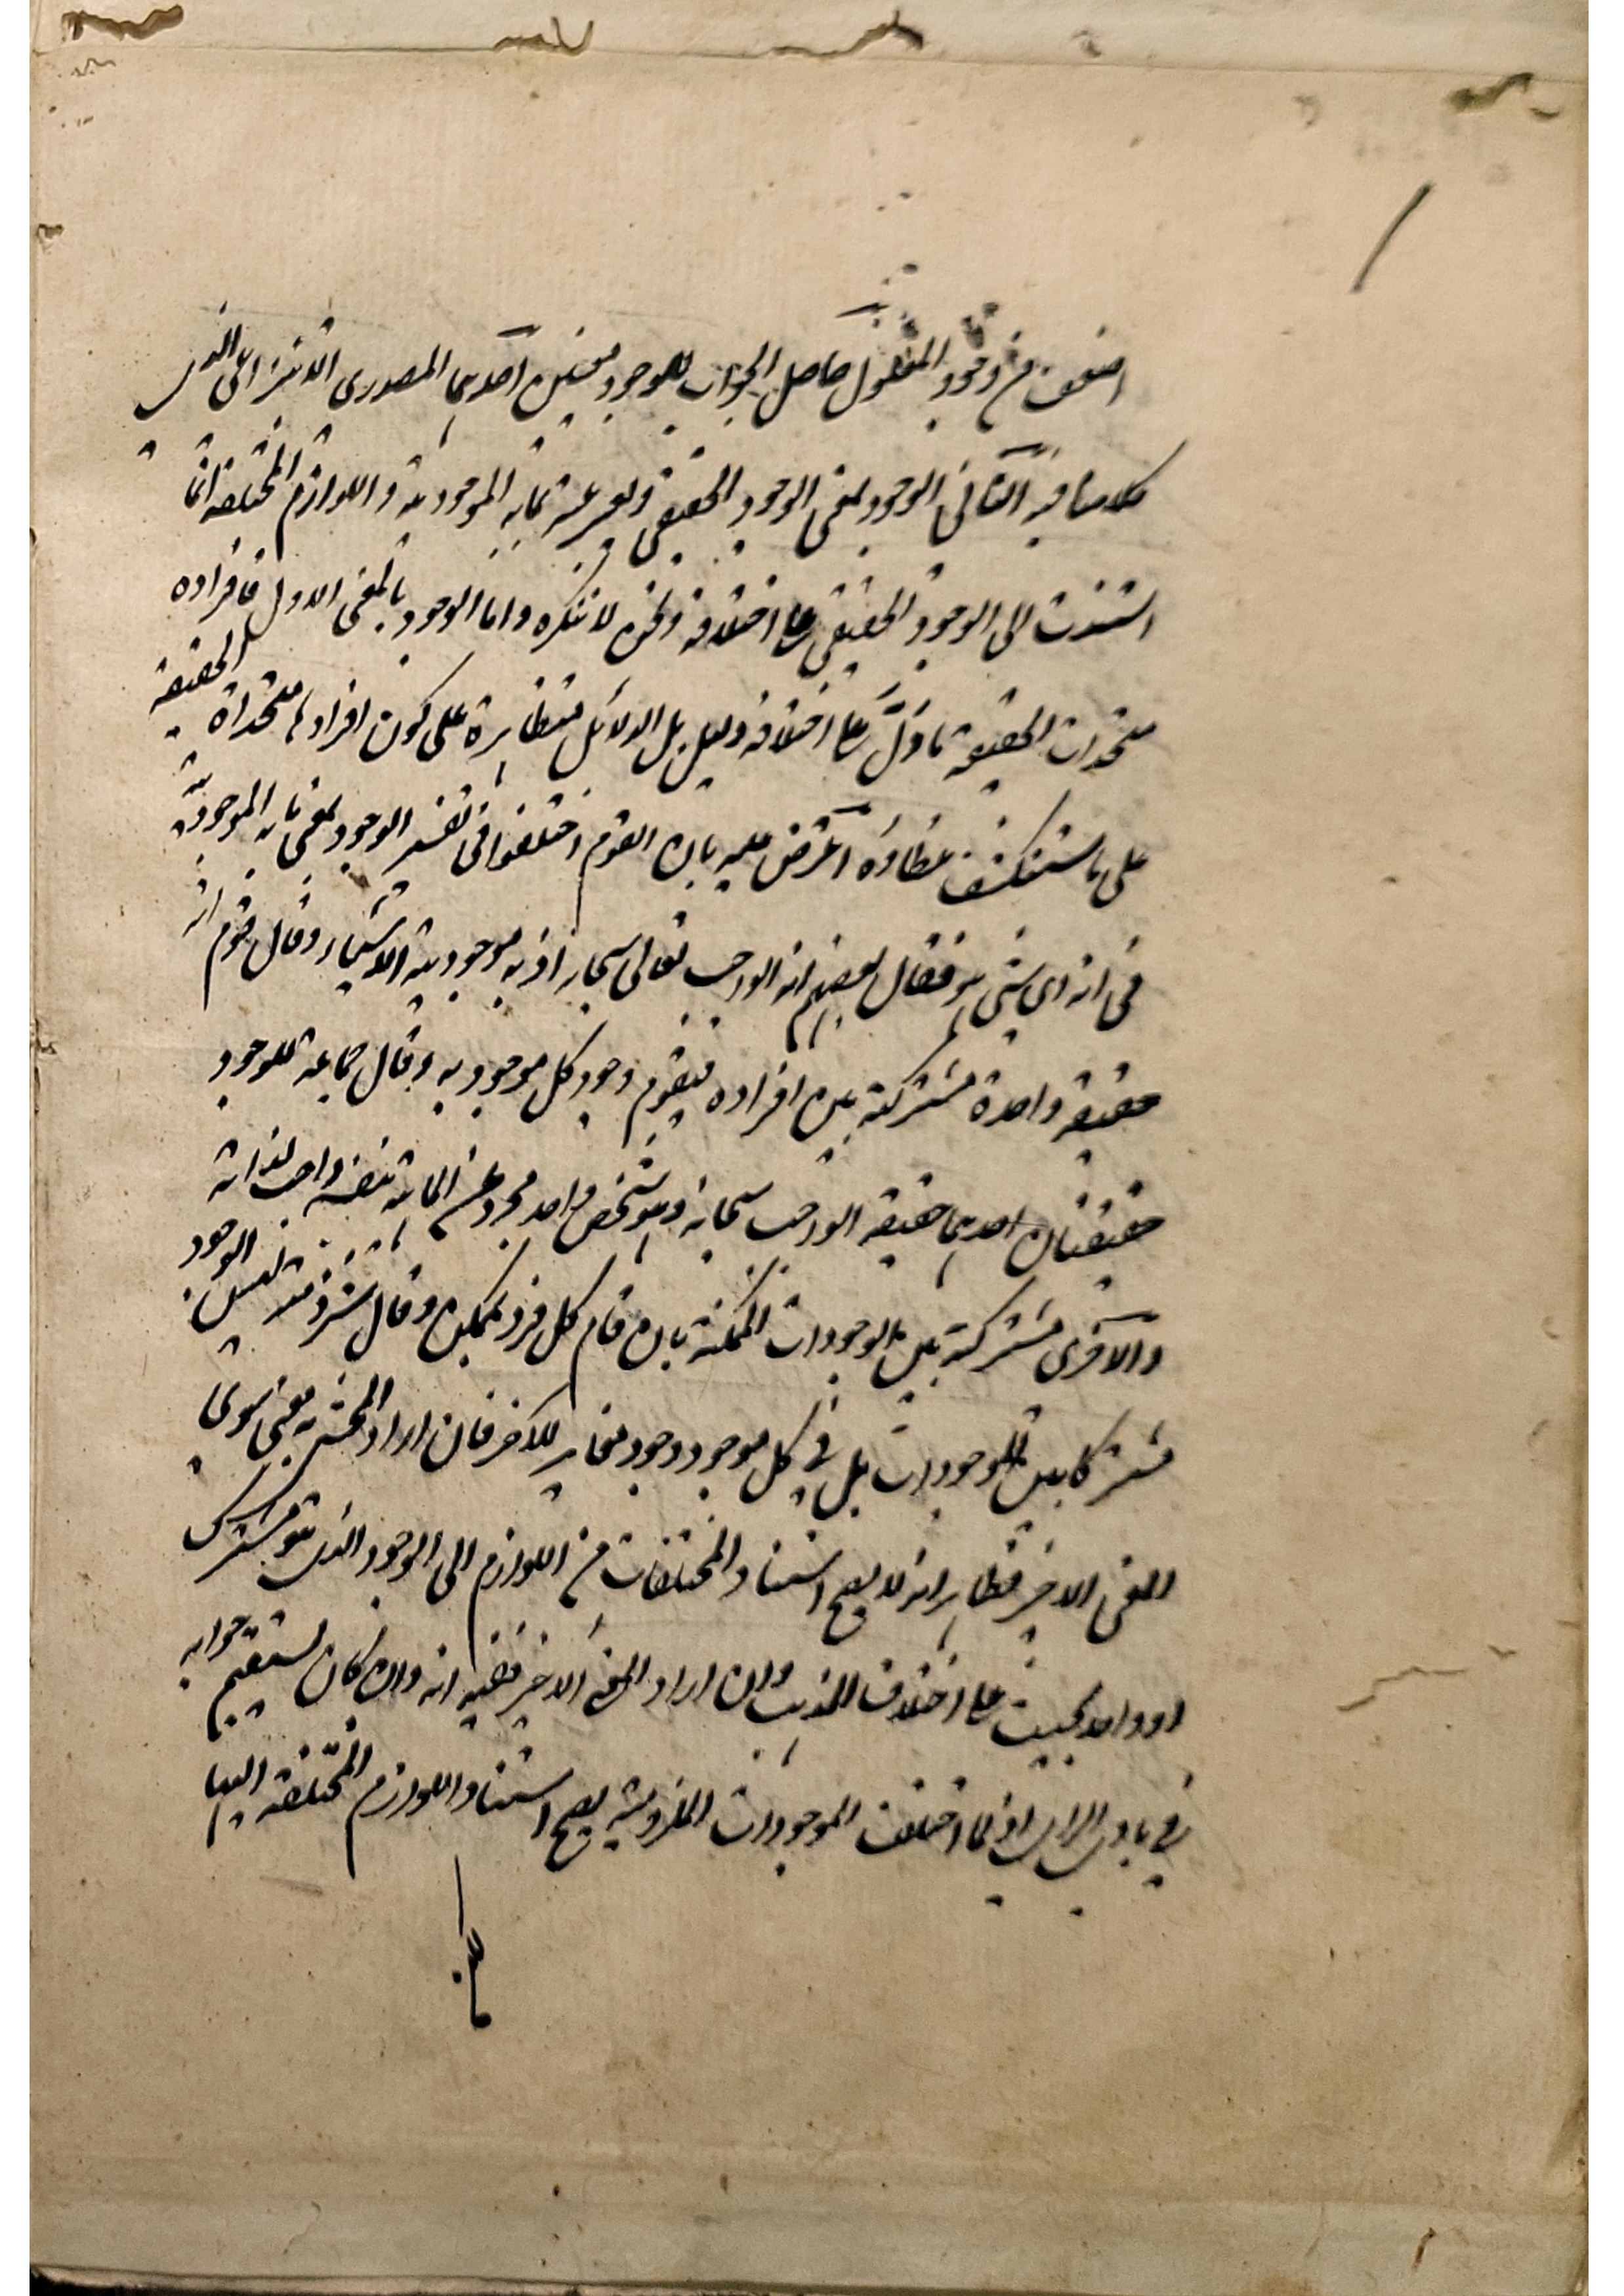 اضعف من وجود المعلول حاصل الجواب للوجود معنيين احديهما المصدرى الانتزاعى الذى
كلامنا فيه الثانى الوجود بمعنى الوجود الحقيقى ويعبر عنه بما به الموجودية واللوازم المختلفة انما
استندت الى الوجود الحقيقى على اختلافه ونحن لا ننكره واما الوجود بالمعنى الاول فافراده
متحدات الحقيقة ما دل على اختلافه دليل بل الدلائل متظاهرة على كون افرادها متحداة الحقيقة
على ما ستنكشف غطاؤه اعترض عليه بان القوم اختلفوا فى تفسير الوجود بمعنى ما به الموجودية
فى انه اى شئ هو فقال بعضهم انه الواجب تعالى سبحانه اذ به موجودية الاشياء وقال قوم انه
حقيقة واحدة مشتركة بين افراده فيقوم وجود كل موجود به وقال جماعة للوجود
حقيقتان احديهما حقيقة الواجب سبحانه وهو شخص واحد مجرد عن الماهية بنفسه واجب لذاته
والآخرى مشتركة بين الوجودات الممكنة بان قام كل فرد بممكن وقال شرذمة ليس الوجود
مشتركا بين الموجودات بل فى كل موجود وجود مغاير للآخر فان اراد المحشى به معنى سوى
المعنى الاخير فظاهر انه لا يصح استناد المختلفات من اللوازم الى الوجود الذى هو مشترك
او واحد بحيث على اختلاف المذهب وان اراد المعنى الاخير ففيه انه وان كان يستقيم جوابه
فى بادى الراى اذ لما اختلفت الموجودات المفروضة يصح استناد اللوازم المختلفة اليها